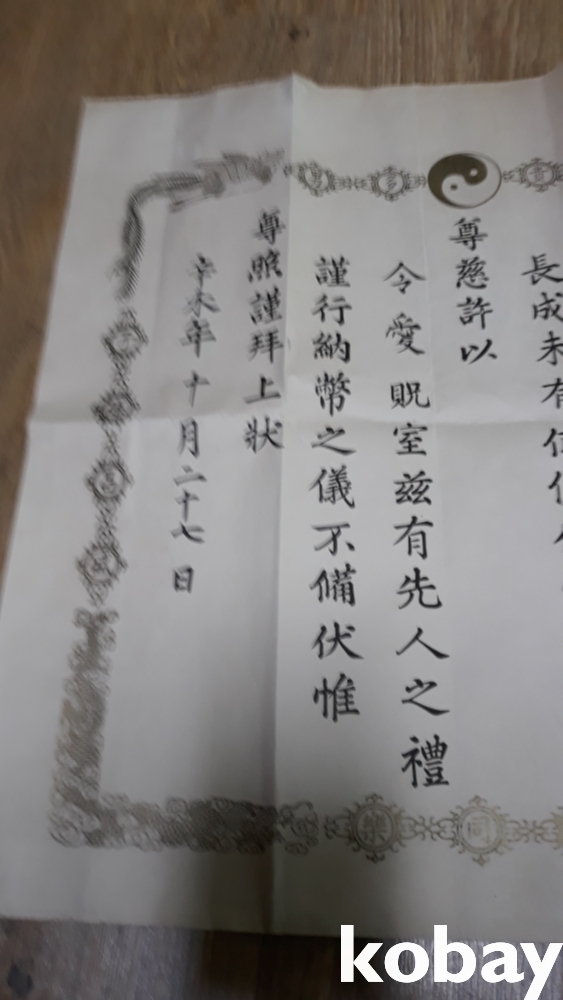 長成未有
尊慈許以
令愛貺室茲有先人之禮
謹行納幣之儀不備伏惟
尊照謹拜上狀
辛未年十月二十七日
同樂
kobay